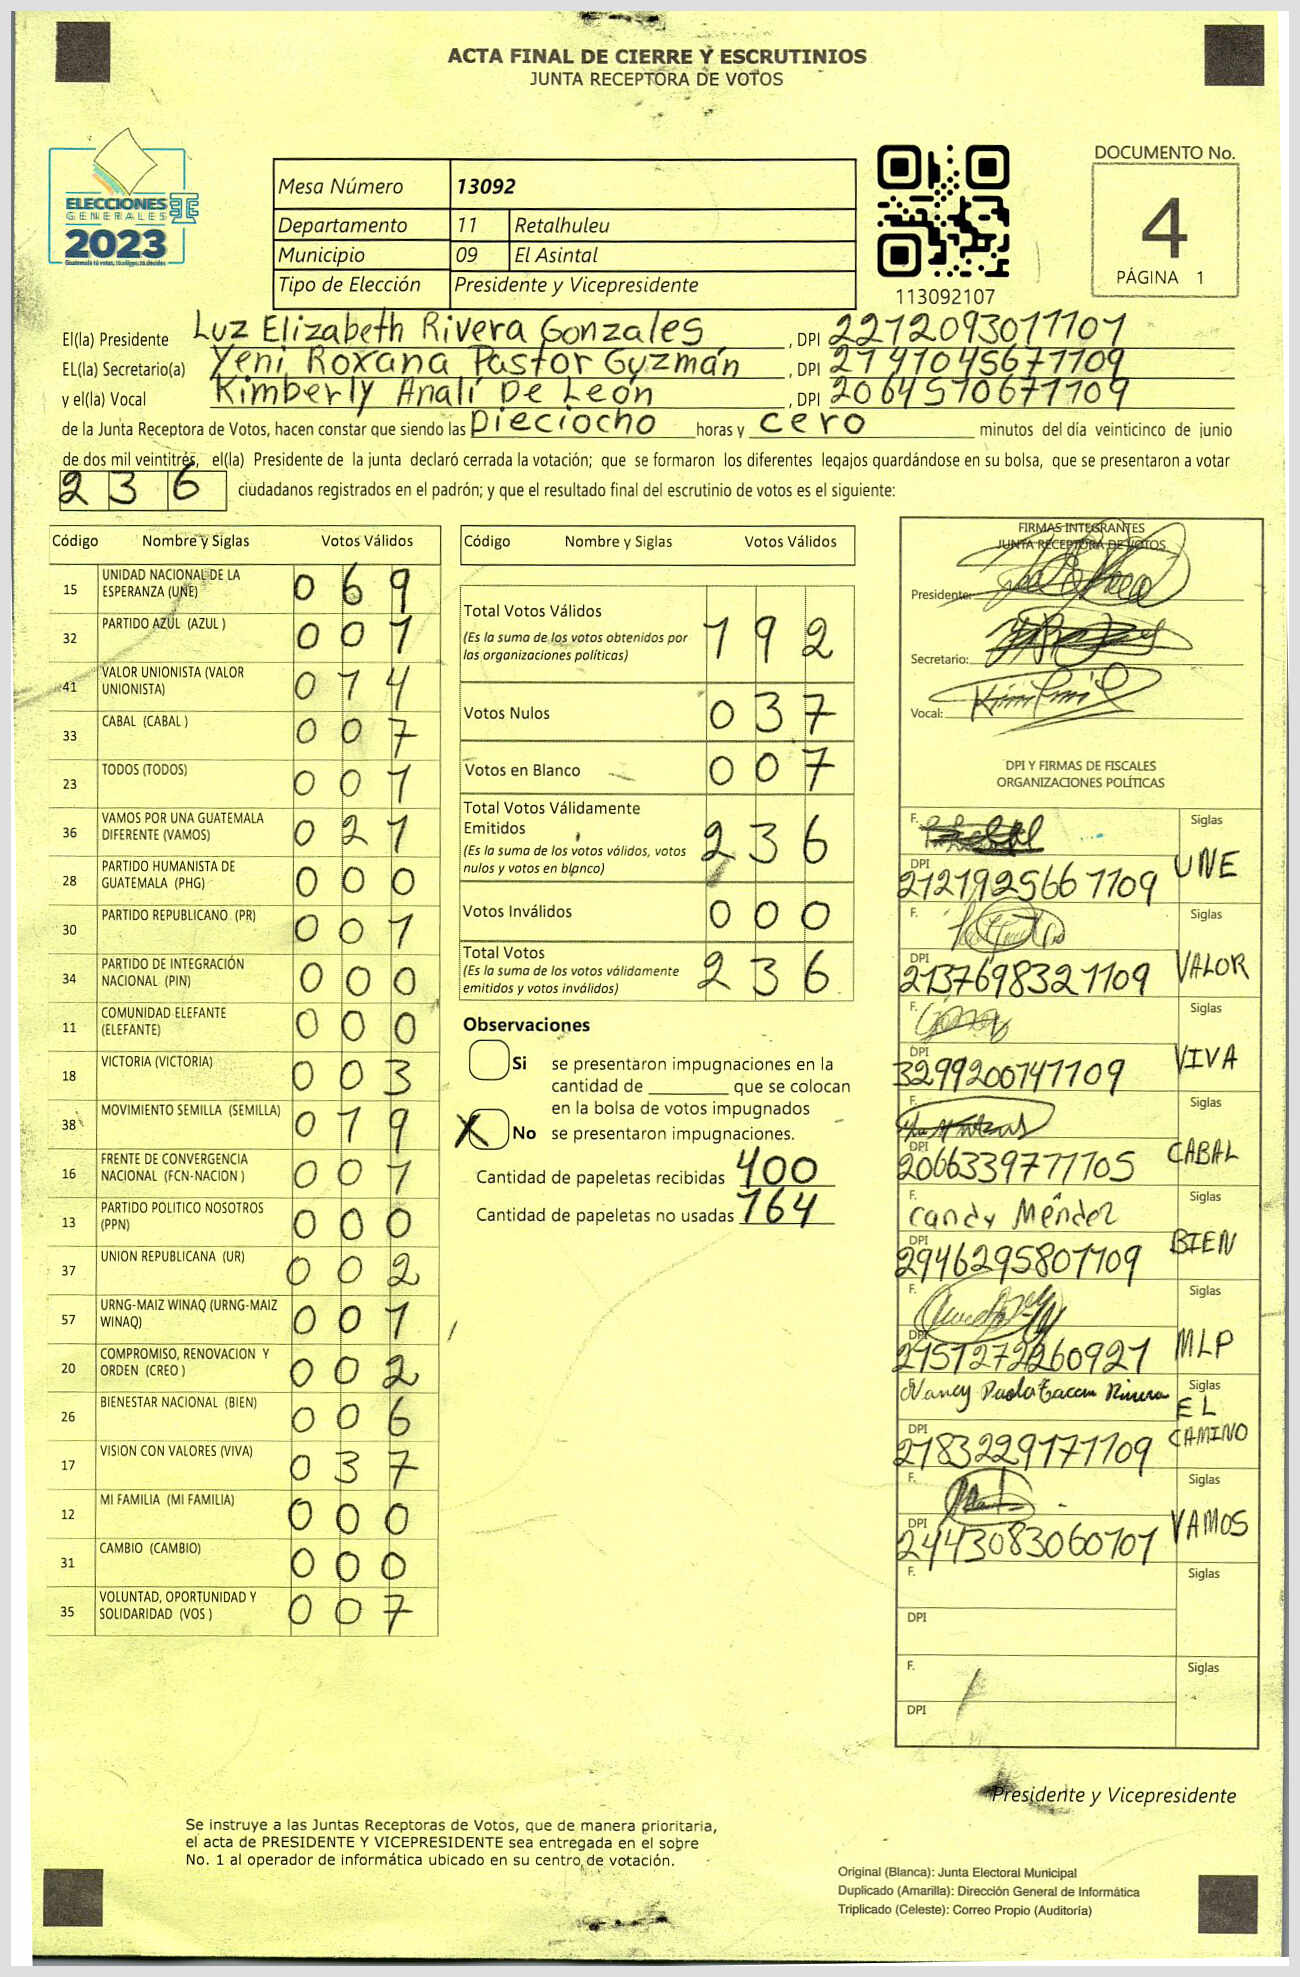 ACTA FINAL DE CIERRE Y ESCRUTINIOS
JUNTA RECEPTORA DE VOTOS
ELECCIONES
GENERALES
2023
Mesa Número 13092
Departamento 11 Retalhuleu
Municipio 09 El Asintal
Tipo de Elección Presidente y Vicepresidente
113092107
DOCUMENTO No.
4
PÁGINA 1
El(la) Presidente Luz Elizabeth Rivera Gonzales, DPI 2212093011101
EL(la) Secretario(a) Yeni Roxana Pastor Guzmán, DPI 2141045671109
y el(la) Vocal Kimberly Analí De León, DPI 2064510671109
de la Junta Receptora de Votos, hacen constar que siendo las Dieciocho horas y cero minutos del día veinticinco de junio
de dos mil veintitrés, el(la) Presidente de la junta declaró cerrada la votación; que se formaron los diferentes legajos guardándose en su bolsa, que se presentaron a votar
236 ciudadanos registrados en el padrón; y que el resultado final del escrutinio de votos es el siguiente:
Código Nombre y Siglas Votos Válidos
15 UNIDAD NACIONAL DE LA ESPERANZA (UNE) 069
32 PARTIDO AZUL (AZUL ) 001
41 VALOR UNIONISTA (VALOR UNIONISTA) 014
33 CABAL (CABAL ) 007
23 TODOS (TODOS) 001
36 VAMOS POR UNA GUATEMALA DIFERENTE (VAMOS) 021
28 PARTIDO HUMANISTA DE GUATEMALA (PHG) 000
30 PARTIDO REPUBLICANO (PR) 001
34 PARTIDO DE INTEGRACIÓN NACIONAL (PIN) 000
11 COMUNIDAD ELEFANTE (ELEFANTE) 000
18 VICTORIA (VICTORIA) 003
38 MOVIMIENTO SEMILLA (SEMILLA) 019
16 FRENTE DE CONVERGENCIA NACIONAL (FCN-NACION ) 001
13 PARTIDO POLITICO NOSOTROS (PPN) 000
37 UNION REPUBLICANA (UR) 002
57 URNG-MAIZ WINAQ (URNG-MAIZ WINAQ) 001
20 COMPROMISO, RENOVACION Y ORDEN (CREO ) 002
26 BIENESTAR NACIONAL (BIEN) 006
17 VISION CON VALORES (VIVA) 037
12 MI FAMILIA (MI FAMILIA) 000
31 CAMBIO (CAMBIO) 000
35 VOLUNTAD, OPORTUNIDAD Y SOLIDARIDAD (VOS ) 007
Código Nombre y Siglas Votos Válidos
Total Votos Válidos 192
(Es la suma de los votos obtenidos por
las organizaciones políticas)
Votos Nulos 037
Votos en Blanco 007
Total Votos Válidamente
Emitidos 236
(Es la suma de los votos válidos, votos
nulos y votos en blanco)
Votos Inválidos 000
Total Votos 236
(Es la suma de los votos válidamente
emitidos y votos inválidos)
Observaciones
Si se presentaron impugnaciones en la
cantidad de ________ que se colocan
en la bolsa de votos impugnados
X No se presentaron impugnaciones.
Cantidad de papeletas recibidas 400
Cantidad de papeletas no usadas 164
FIRMAS INTEGRANTES
JUNTA RECEPTORA DE VOTOS
Presidente:
Secretario:
Vocal:
DPI Y FIRMAS DE FISCALES
ORGANIZACIONES POLÍTICAS
F. Siglas UNE
DPI 2121925661109
F. Siglas VALOR
DPI 2137698321109
F. Siglas VIVA
DPI 3299200141109
F. Siglas CABAL
DPI 2066339771105
F. Candy Méndez Siglas BIEN
DPI 2946295801109
F. Siglas MLP
DPI 2151272260921
F. Nancy Paola Rivera Siglas EL CAMINO
DPI 2183229171109
F. Siglas VAMOS
DPI 2443083060101
F. Siglas
DPI
F. Siglas
DPI
Presidente y Vicepresidente
Se instruye a las Juntas Receptoras de Votos, que de manera prioritaria,
el acta de PRESIDENTE Y VICEPRESIDENTE sea entregada en el sobre
No. 1 al operador de informática ubicado en su centro de votación.
Original (Blanca): Junta Electoral Municipal
Duplicado (Amarilla): Dirección General de Informática
Triplicado (Celeste): Correo Propio (Auditoría)